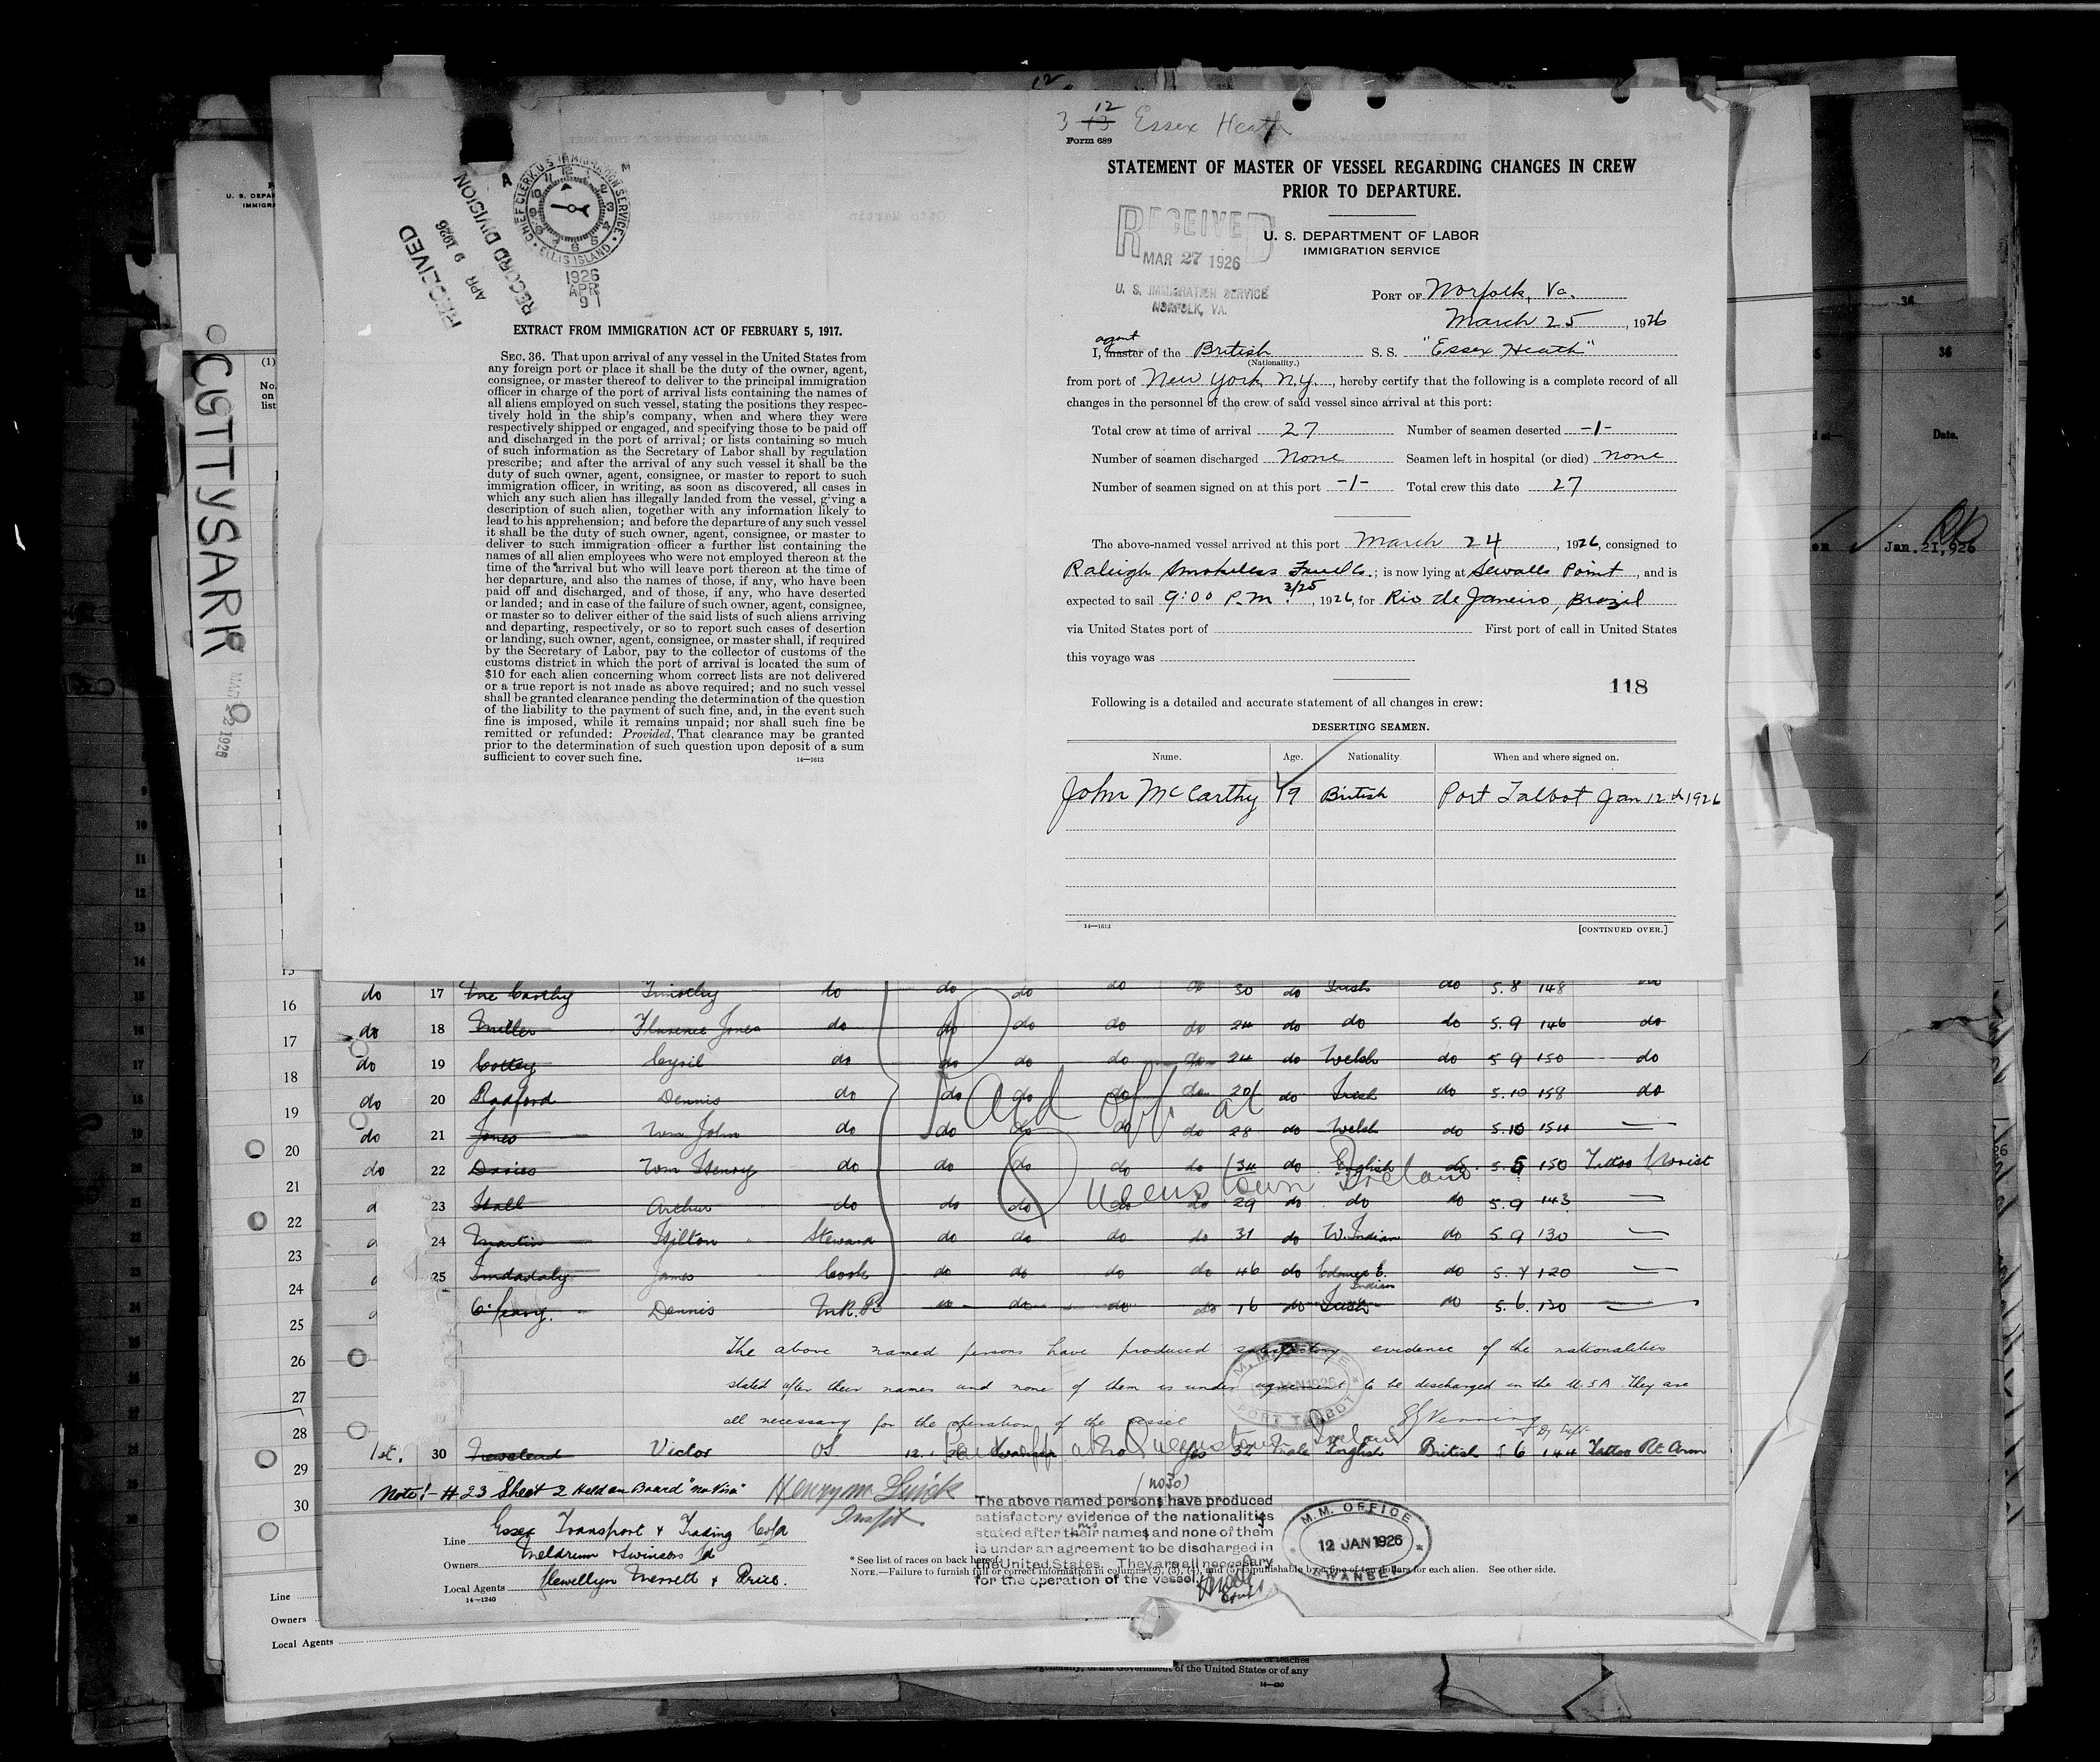 3 13 12 Essex Heath
Form 689
STATEMENT OF MASTER OF VESSEL REGARDING CHANGES IN CREW
PRIOR TO DEPARTURE.
RECEIVED
MAR 27 1926
U. S. IMMIGRATION SERVICE
NORFOLK, VA.
U. S. DEPARTMENT OF LABOR
IMMIGRATION SERVICE
PORT OF Norfolk, Va.
March 25, 1926
agent
I, master of the British S. S. "Essex Heath"
(Nationality.)
from port of New York N.Y., hereby certify that the following is a complete record of all
changes in the personnel of the crew of said vessel since arrival at this port:
Total crew at time of arrival 27 Number of seamen deserted -1-
Number of seamen discharged None Seamen left in hospital (or died) none
Number of seamen signed on at this port -1- Total crew this date 27
The above-named vessel arrived at this port March 24, 1926, consigned to
Raleigh Smokeless Fuel Co.; is now lying at Sewalls Point, and is
expected to sail 9:00 P.M. 3/25, 1926, for Rio de Janeiro, Brazil
via United States port of First port of call in United States
this voyage was
118
Following is a detailed and accurate statement of all changes in crew:
DESERTING SEAMEN.
Name. Age. Nationality. When and where signed on.
John McCarthy 19 British Port Talbot Jan 12th 1926
14—1613 [CONTINUED OVER.]
CHIEF CLERK U S IMMIGRATION SERVICE
ELLIS ISLAND
1926
APR
9
RECEIVED
APR 9 1926
RECORD DIVISION
EXTRACT FROM IMMIGRATION ACT OF FEBRUARY 5, 1917.
SEC. 36. That upon arrival of any vessel in the United States from
any foreign port or place it shall be the duty of the owner, agent,
consignee, or master thereof to deliver to the principal immigration
officer in charge of the port of arrival lists containing the names of
all aliens employed on such vessel, stating the positions they respec-
tively hold in the ship's company, when and where they were
respectively shipped or engaged, and specifying those to be paid off
and discharged in the port of arrival; or lists containing so much
of such information as the Secretary of Labor shall by regulation
prescribe; and after the arrival of any such vessel it shall be the
duty of such owner, agent, consignee, or master to report to such
immigration officer, in writing, as soon as discovered, all cases in
which any such alien has illegally landed from the vessel, giving a
description of such alien, together with any information likely to
lead to his apprehension; and before the departure of any such vessel
it shall be the duty of such owner, agent, consignee, or master to
deliver to such immigration officer a further list containing the
names of all alien employees who were not employed thereon at the
time of the arrival but who will leave port thereon at the time of
her departure, and also the names of those, if any, who have been
paid off and discharged, and of those, if any, who have deserted
or landed; and in case of the failure of such owner, agent, consignee,
or master so to deliver either of the said lists of such aliens arriving
and departing, respectively, or so to report such cases of desertion
or landing, such owner, agent, consignee, or master shall, if required
by the Secretary of Labor, pay to the collector of customs of the
customs district in which the port of arrival is located the sum of
$10 for each alien concerning whom correct lists are not delivered
or a true report is not made as above required; and no such vessel
shall be granted clearance pending the determination of the question
of the liability to the payment of such fine, and, in the event such
fine is imposed, while it remains unpaid; nor shall such fine be
remitted or refunded: Provided, That clearance may be granted
prior to the determination of such question upon deposit of a sum
sufficient to cover such fine.
14—1613
Date.
Jan. 21, 926
do 17 Mc Carthy Timothy do do do do do 30 do Irish do 5.8 148 do
do 18 Miller Florence Jones do do do do do 24 do do do 5.9 146 do
do 19 Cottey Cyril do do do do do 24 do Welsh do 5 9 150 do
do 20 Radford Dennis do do do do do 20 do Irish do 5.10 158 do
do 21 Jones Wm John do do do do do 28 do Welsh do 5.10 154 —
do 22 Davies Wm Henry do do do do do 34 do English do 5.5 150 Tattoo Wrist
23 Hall Archer do do do do do 29 do do do 5.9 143 —
24 Martin Hilton Steward do do do do 31 do W. Indian do 5.9 130 —
25 James Cook do do do do 46 do E. Indian do 5.4 120 —
Dennis do do do do 16 do Irish do 5.6. 130 —
Paid off at
Queenstown Ireland
The above named persons have produced satisfactory evidence of the nationalities
stated after their names and none of them is under agreement to be discharged in the U.S.A They are
all necessary for the operation of the vessel
1st. 30 Victor OS 12.1.26 Swansea no yes 32 Male English British 5 6 144 Tattoo Rt Arm
Paid off at Queenstown Ireland
Note! - # 23 Sheet 2 Held on Board "no Visa"
(no 30)
The above named persons have produced
satisfactory evidence of the nationalities
stated after their names and none of them
is under an agreement to be discharged in
the United States. They are all necessary
for the operation of the vessel.
M. M. OFFICE
12 JAN 1926
SWANSEA
Line Essex Transport & Trading Co Ld
Owners Meldrum & Swinson Ld
Local Agents Llewellyn Merrett & Price.
14—1240
* See list of races on back hereof.
NOTE.—Failure to furnish full or correct information in columns (2), (3), (4), and (5) is punishable by a fine of ten dollars for each alien. See other side.
Line
Owners
Local Agents
of the United States or of any